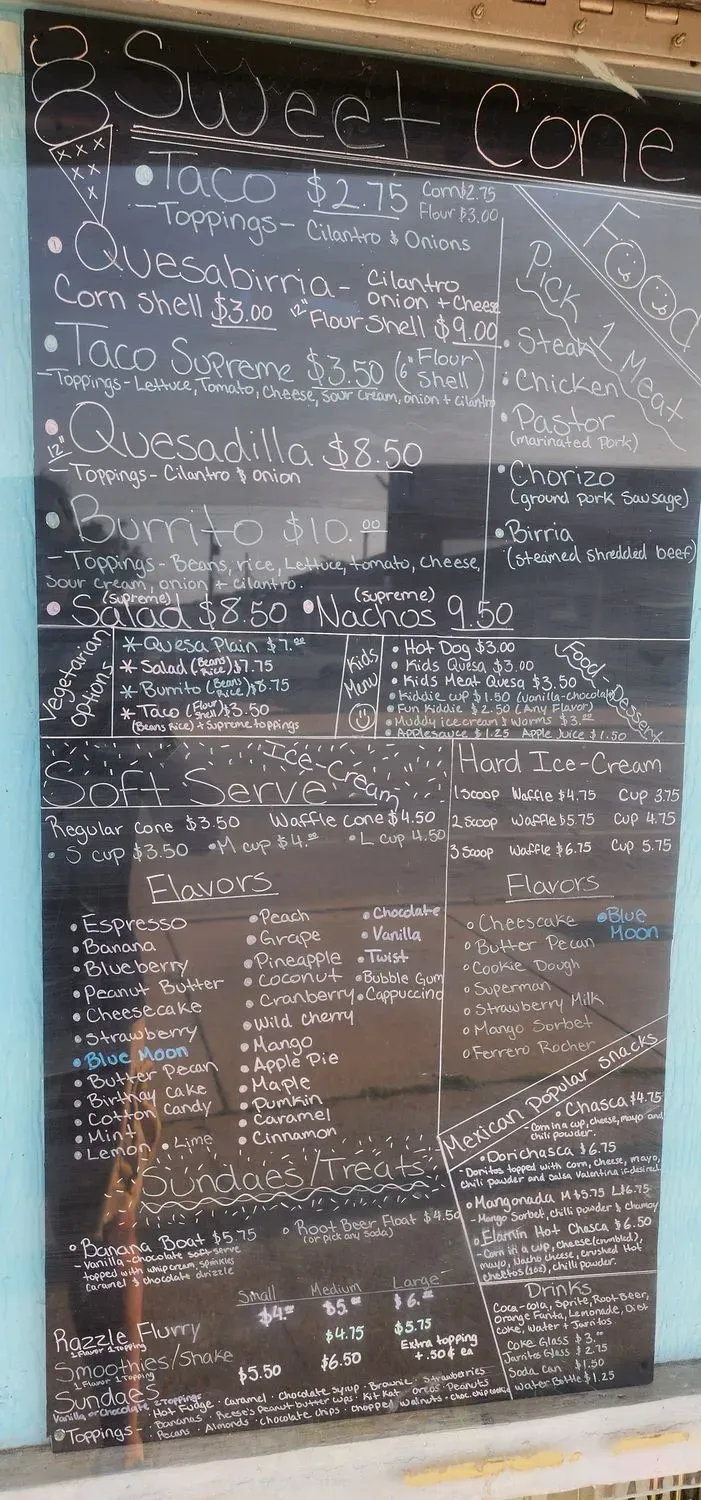 Sweet Cone
Taco $2.75 Corn $2.75
Flour $3.00
-Toppings- Cilantro & Onions
Food
Pick 1 Meat
• Steak
• Chicken
• Pastor
(marinated Pork)
• Chorizo
(ground pork sausage)
• Birria
(steamed shredded beef)
• Quesabirria- Cilantro
onion + Cheese
Corn shell $3.00 12" Flour Shell $9.00
• Taco Supreme $3.50 (6" Flour Shell)
-Toppings-Lettuce, Tomato, Cheese, Sour Cream, onion + cilantro
• 12" Quesadilla $8.50
- Toppings- Cilantro & onion
• Burrito $10.00
- Toppings- Beans, rice, Lettuce, tomato, cheese,
Sour cream, onion + cilantro.
(supreme) (supreme)
• Salad $8.50 • Nachos 9.50
Vegetarian Options
* Quesa Plain $7.00
* Salad (Beans Rice) $7.75
* Burrito (Beans Rice) $8.75
* Taco (Flour Shell) $3.50
(Beans Rice) + Supreme toppings
Kids Menu
Food-Dessert
• Hot Dog $3.00
• Kids Quesa $3.00
• Kids Meat Quesa $3.50
• Kiddie cup $1.50 (vanilla-chocolate)
• Fun Kiddie $2.50 (Any Flavor)
• Muddy ice cream & worms $3.00
• Applesauce $1.25 Apple Juice $1.50
Soft Serve Ice-Cream
Regular cone $3.50 Waffle cone $4.50
• S cup $3.50 • M cup $4.00 • L cup 4.50
Flavors
• Espresso
• Banana
• Blueberry
• Peanut Butter
• Cheesecake
• Strawberry
• Blue Moon
• Butter Pecan
• Birthay Cake
• Cotton Candy
• Mint
• Lemon • Lime
• Peach
• Grape
• Pineapple
• Coconut
• Cranberry
• Wild cherry
• Mango
• Apple Pie
• Maple
• Pumkin
• Caramel
• Cinnamon
• Chocolate
• Vanilla
• Twist
• Bubble Gum
• Cappuccino
Hard Ice-Cream
1 Scoop Waffle $4.75 Cup 3.75
2 Scoop Waffle $5.75 Cup 4.75
3 Scoop Waffle $6.75 Cup 5.75
Flavors
• Cheescake • Blue Moon
• Butter Pecan
• Cookie Dough
• Superman
• Strawberry Milk
• Mango Sorbet
• Ferrero Rocher
Mexican Popular snacks
• Chasca $4.75
-Corn in a cup, cheese, mayo and
chili powder.
• Dorichasca $6.75
-Doritos topped with corn, cheese, mayo,
chili powder and Salsa Valentina if desired
• Mangonada M $5.75 L $6.75
-Mango Sorbet, chilli powder & chamoy
• Flamin Hot Chasca $6.50
-Corn in a cup, Cheese (crumbled),
mayo, Nacho cheese, crushed Hot
cheetos (1oz), chilli powder.
Drinks
Coca-cola, Sprite, Root Beer,
Orange Fanta, Lemonade, Diet
Coke, water + Jarritos
Coke Glass $3.00
Jarritos Glass $2.75
Soda Can $1.50
Water Bottle $1.25
Sundaes/Treats
• Banana Boat $5.75
- Vanilla-Chocolate soft serve
topped with whip cream, sprinkles
Caramel & chocolate drizzle
• Root Beer Float $4.50
(or pick any soda)
Small Medium Large
Razzle Flurry $4.00 $5.00 $6.00
1 Flavor 1 Topping
Smoothies/Shake $4.75 $5.75
1 Flavor 1 Topping
Sundaes $5.50 $6.50
Extra topping
+ .50¢ ea
Vanilla or Chocolate 2 Toppings
• Toppings- Hot Fudge • Caramel • Chocolate Syrup • Brownie • Strawberries
Bananas • Reese's Peanut butter cups • Kit Kat • Oreos • Peanuts
Pecans • Almonds • Chocolate chips • Chopped walnuts • Choc. chip cookie